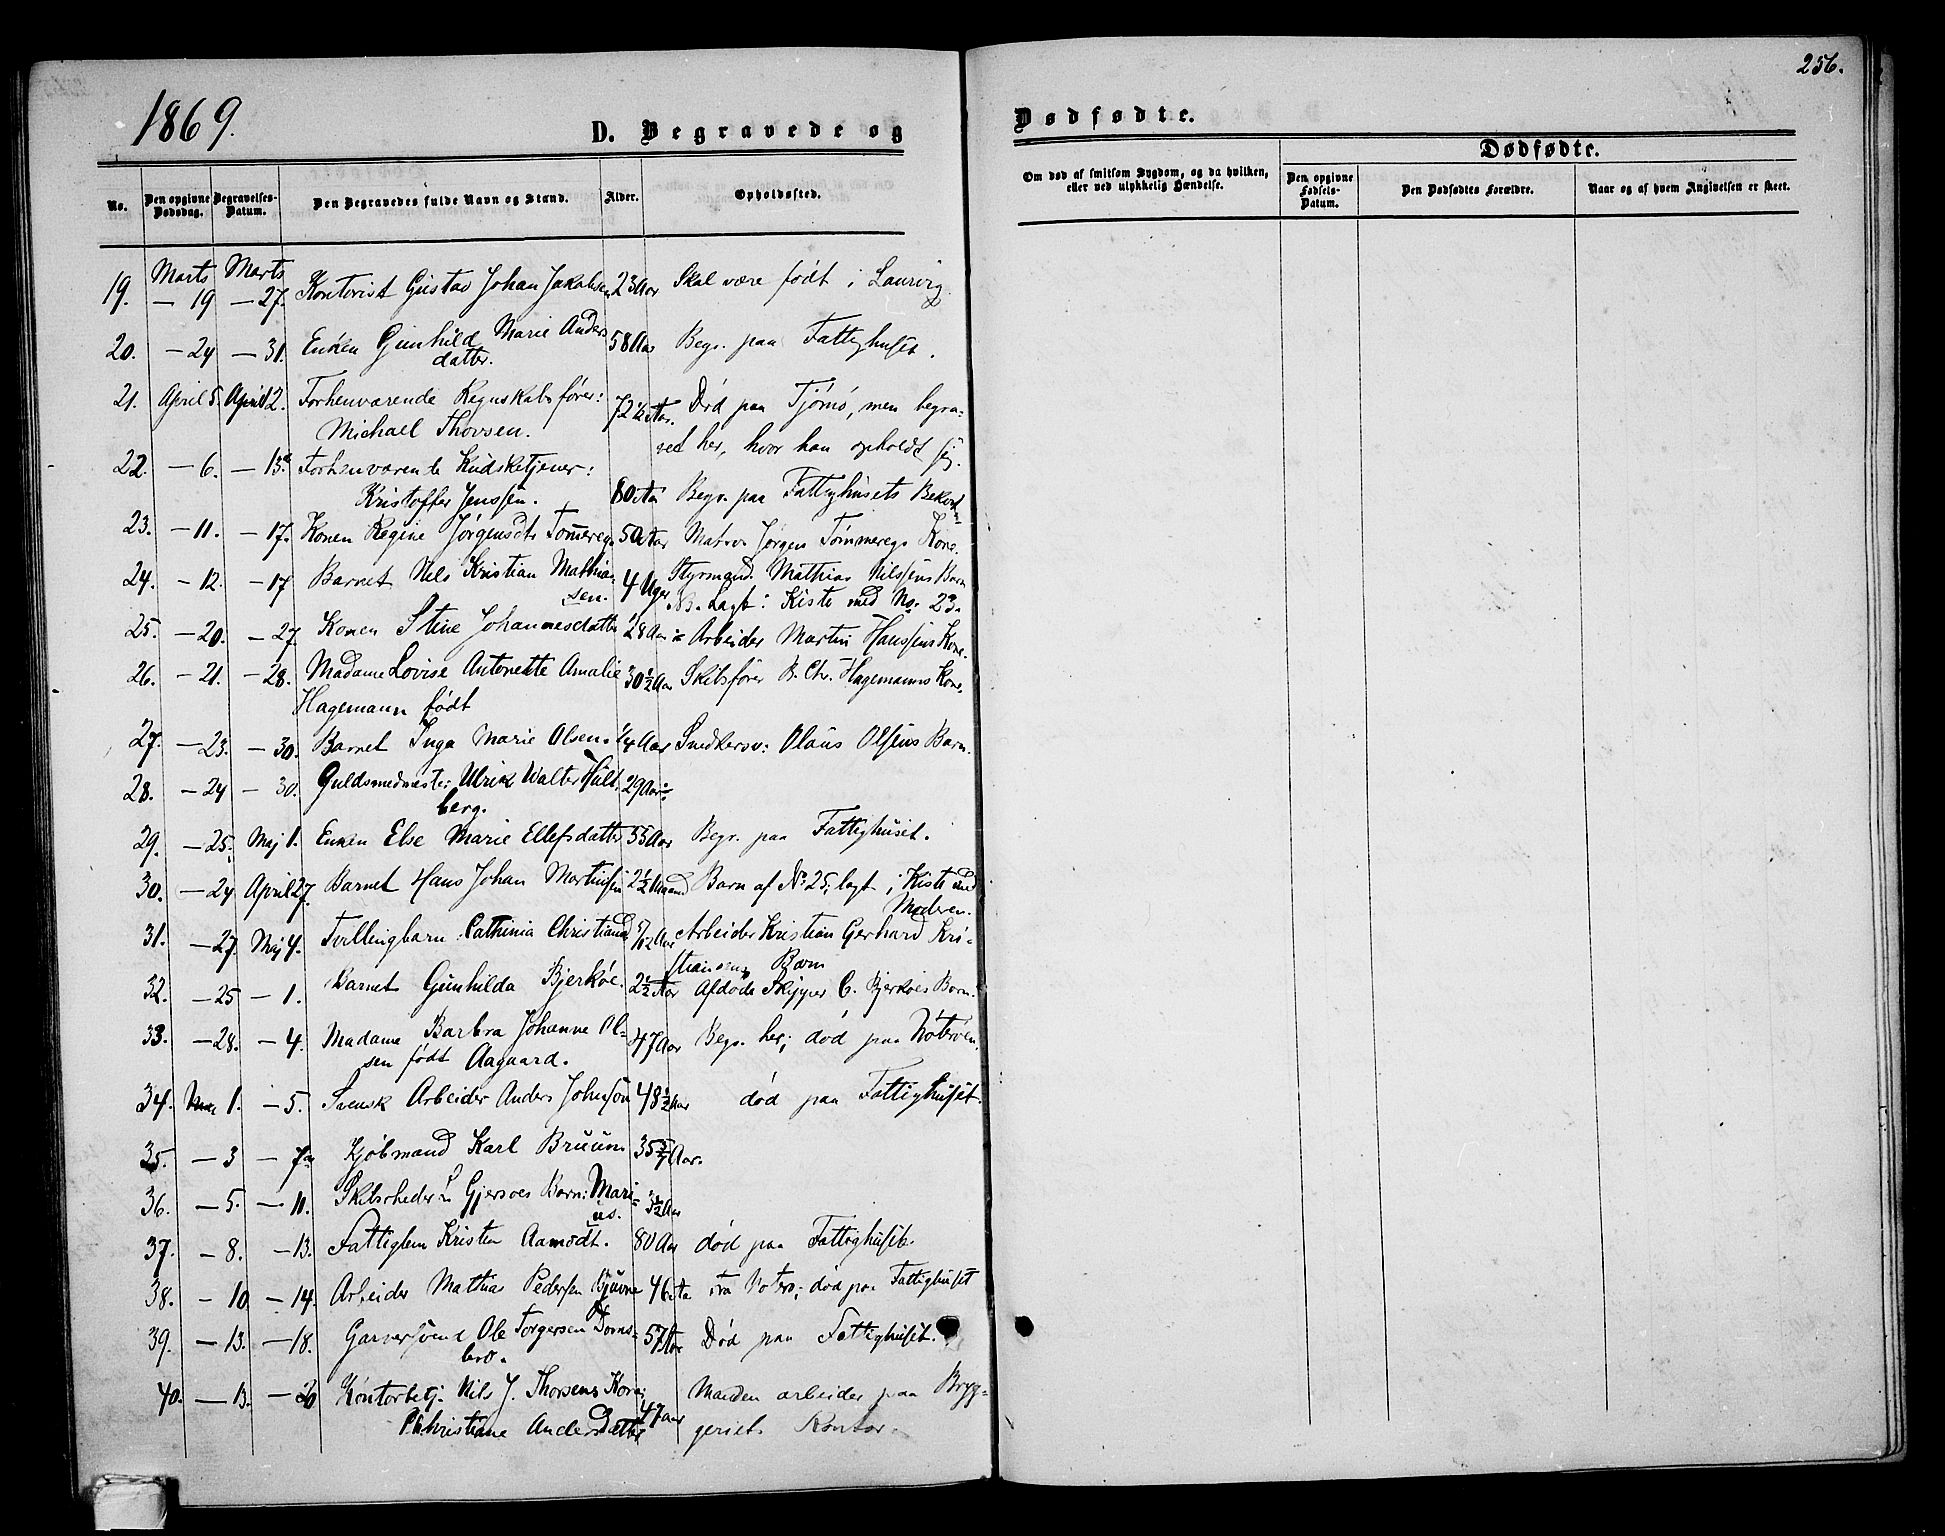 256.
1869.
D. Begravede og
Dødfødte.
No.
Den opgivne Dødsdag.
Begravelses-Datum.
Den Begravedes fulde Navn og Stand.
Alder.
Opholdssted.
Om død af smitsom Sygdom, og da hvilken, eller ved ulykkelig Hændelse.
Dødfødte.
Den opgivne Fødsels-Datum.
Den Dødfødtes Forældre.
Naar og af hvem Angivelsen er skeet.
Marts Marts
19. — 19 — 27. Kontorist Gustav Johan Jakobsen 23 Aar Skal være født i Laurvig
20. — 24 — 31. Enken Gunhild Marie Anders 58 Aar Begr. paa Fattighuset.
datter.
21. April 5. April 12. Forhenværende Regnskabsfører: 72 ½ Aar. Død paa Tjömö, men begra-
Michael Thorsen. vet her, hvor han opholdt sig.
22. — 6. — 13. Forhenværende Kudsketjener:
Kristoffer Jenssen. 80 Aar Begr. paa Fattighusets Bekost-
23. — 11. — 17. Konen Regine Jörgensdt. Tömereg 50 Aar Matr. Jörgen Tömmeregs Kone.
24. — 12. — 17 Barnet Nils Kristian Mathias- 4 Uger Styrmand Mathias Nilssens Barn
sen. NB. Lagt i Kiste med No. 23.
25. — 20. — 27 Konen Stine Johannesdatter 28 Aar Arbeider Martin Hanssens Kone.
26. — 21. — 28. Madame Lovise Antonette Amalie 30½ Aar Skibsförer R. Chr. Hagemanns Kone.
Hagemann født
27. — 23. — 30. Barnet Inga Marie Olsen. ¼ Aar Snedkersv: Olaus Olsens Barn.
28. — 24 — 30. Guldsmedmester Ulrik Walter Hult- 29 Aar
berg.
29. — 25. Maj 1. Enken Else Marie Ellefsdatter 55 Aar Begr. paa Fattighuset.
30. — 24 April 27. Barnet Hans Johan Martinsen 2½ Maaned Barn af No: 25, lagt i Kiste med
Moderen.
31. — 27. Maj 4. Tvillingbarn Cathinia Christiane 5/12 Aar Arbeider Kristian Gerhard Kri-
stiansens Barn
32. — 25 — 1. Barnet Gunhilda Bjerköe. 2½ Aar Afdöde Skipper C. Bjerköes Barn.
33. — 28. — 4. Madame Barbra Johanne Ol- 47 Aar Begr. her; död paa Nöteröen.
sen født Aagaard.
34. Mai 1. — 5. Svensk Arbeider Anders Johnson 48½ Aar död paa Fattighuset.
35. — 3 — 7 Kjöbmand Karl Bruun 35 Aar.
36. — 5. — 11. Skibsrheder Gjersoes Barn: Mari- 3½ Aar
us.
37. — 8. — 13. Fattiglem Kristen Aamodt. 80 Aar död paa Fattighuset.
38. — 10 — 14. Arbeider Mathias Pedersen 46 Aar fra Nöterö; död paa Fattighuset
39. — 13. — 18. Garversvend Ole Torgersen Doms- 57 Aar Död paa Fattighuset.
bro.
40. — 13. — 20 Kontorbetj. Nils J. Thorsens Kone; Manden arbeider paa Bryg-
Christiane Andersdatter 47 aar geriets Kontor.